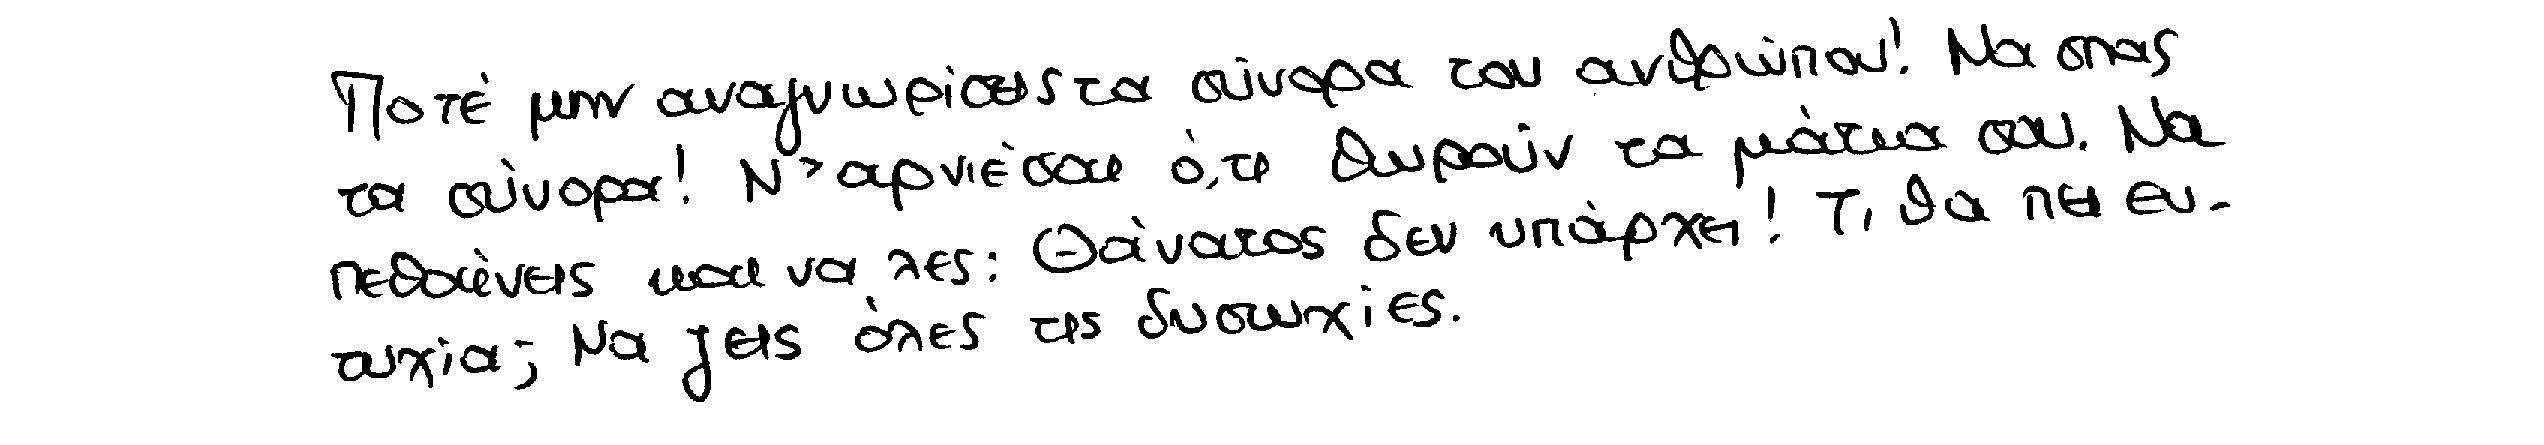 Ποτέ μην αναγνωρίσεις τα σύνορα του ανθρώπου! Να σπας
τα σύνορα! Ν' αρνιέσαι ό,τι θωρούν τα μάτια σου. Να
πεθαίνεις και να λες: Θάνατος δεν υπάρχει! Τι θα πει ευ-
τυχία; Να ζεις όλες τις δυστυχίες.